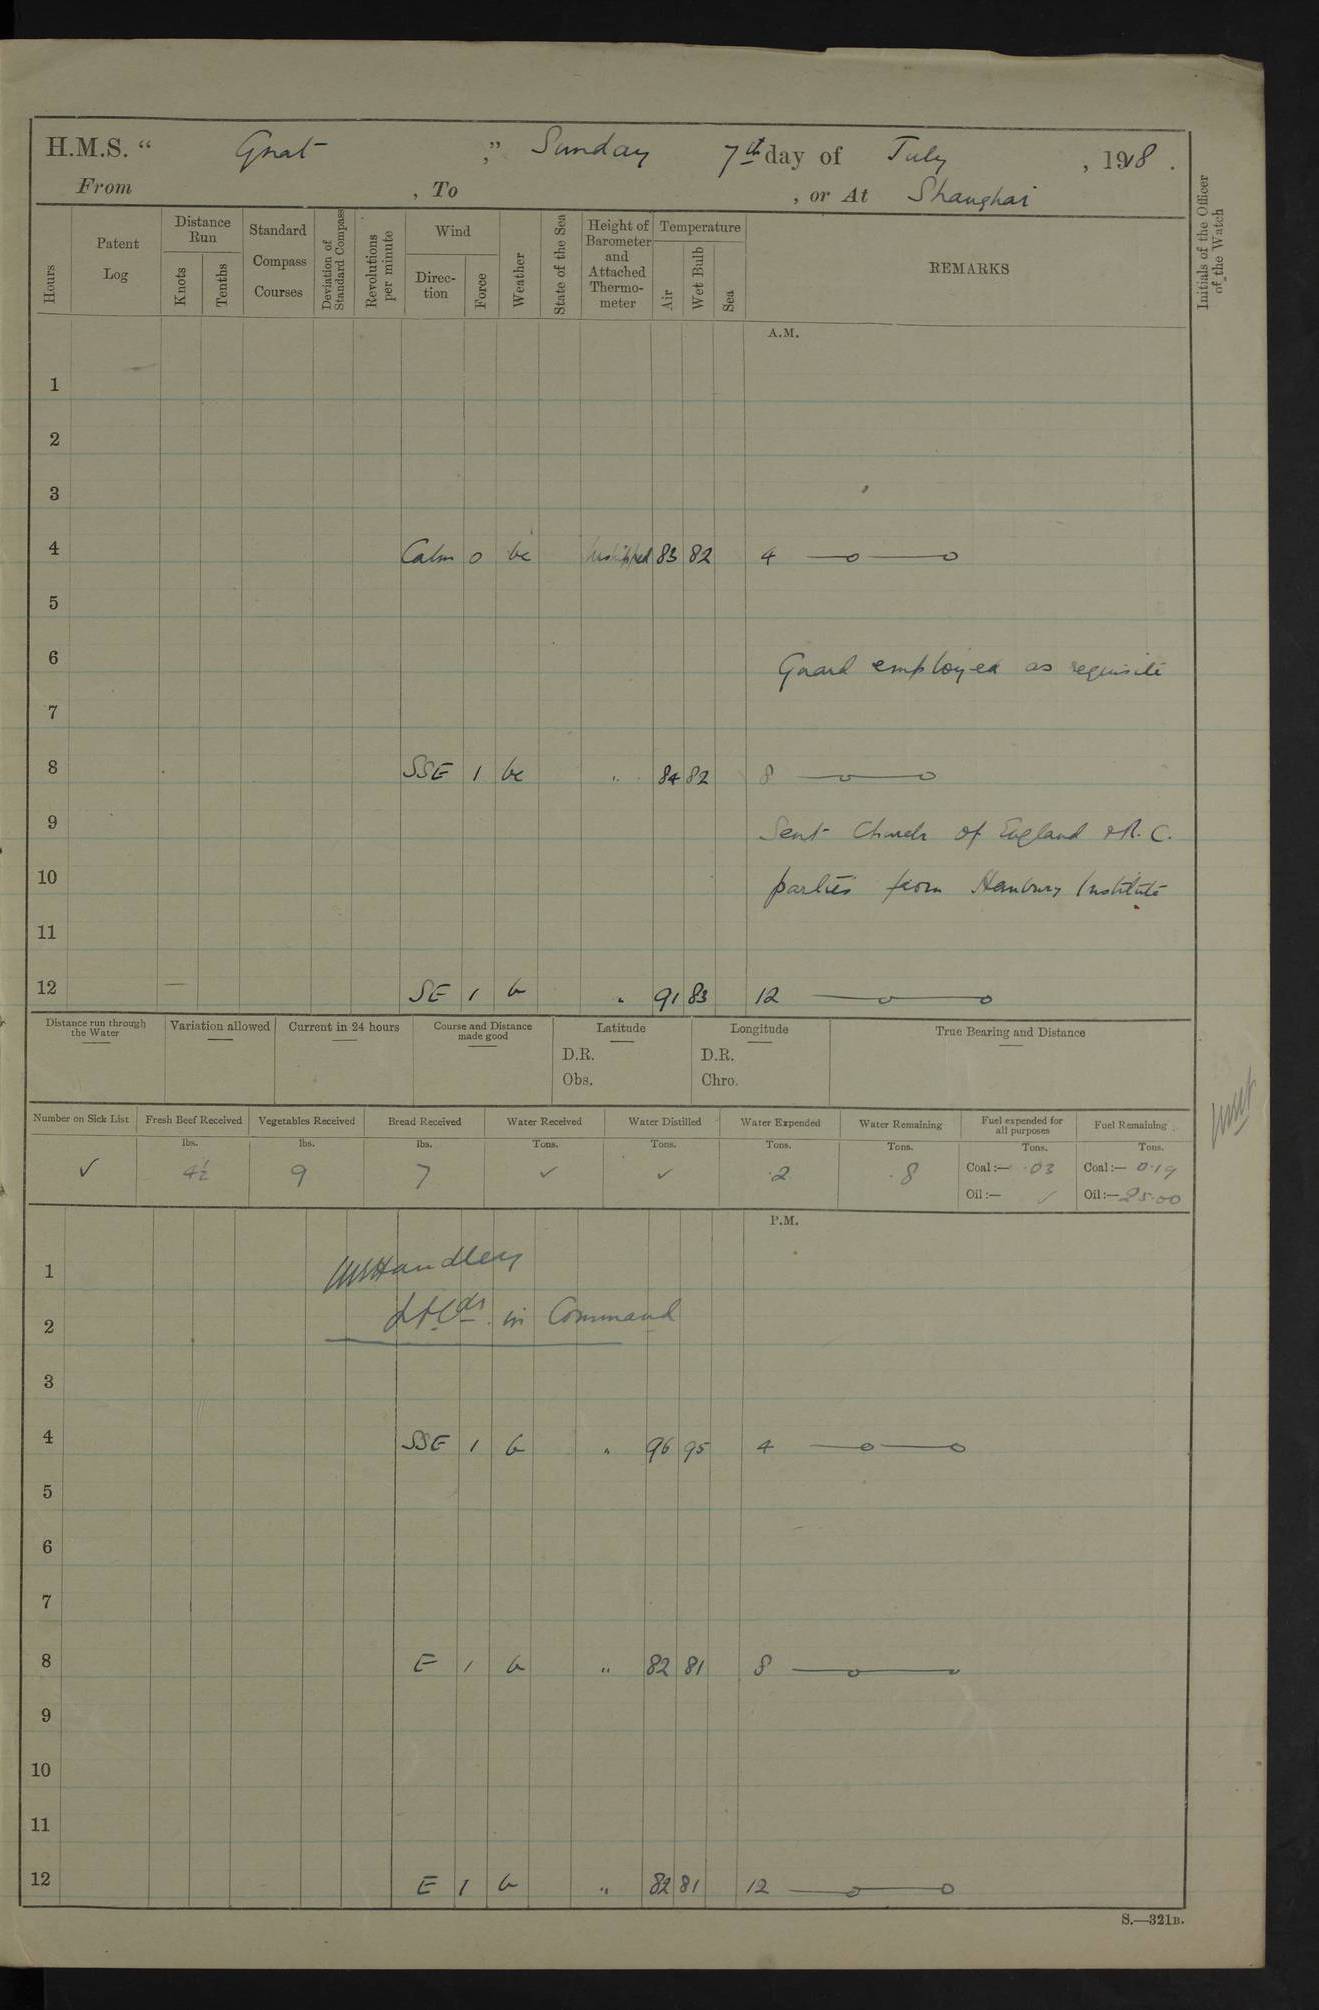 H.M.S. “ Gnat ,” Sunday 7th day of July , 1918 .
From , To , or At Shanghai
Hours
Patent Log
Distance Run
Knots
Tenths
Standard Compass Courses
Deviation of Standard Compass
Revolutions per minute
Wind
Direction
Force
Weather
State of the Sea
Height of Barometer and Attached Thermometer
Temperature
Air
Wet Bulb
Sea
REMARKS
Initials of the Officer of the Watch
A.M.
1
2
3
4 Calm 0 bc 83 82 4
5
6 Guard employed as requisite
7
8 SSE 1 bc " 84 82 8
9 Sent Church of England & R.C.
10 parties from Hanbury Institute
11
12 — SE 1 b " 91 83 12
Distance run through the Water
Variation allowed
Current in 24 hours
Course and Distance made good
Latitude
D.R.
Obs.
Longitude
D.R.
Chro.
True Bearing and Distance
Number on Sick List Fresh Beef Received Vegetables Received Bread Received Water Received Water Distilled Water Expended Water Remaining Fuel expended for all purposes Fuel Remaining
lbs. lbs. lbs. Tons. Tons. Tons. Tons. Tons. Tons.
✓ 4½ 9 7 ✓ ✓ ·2 ·8 Coal:— ·03 Coal:— 0·19
Oil:— ✓ Oil:— 25·00
P.M.
1 Handley
2 Lt Cdr. in Command
3
4 SSE 1 b " 96 95 4
5
6
7
8 E 1 b " 82 81 8
9
10
11
12 E 1 b " 82 81 12
S.—321B.